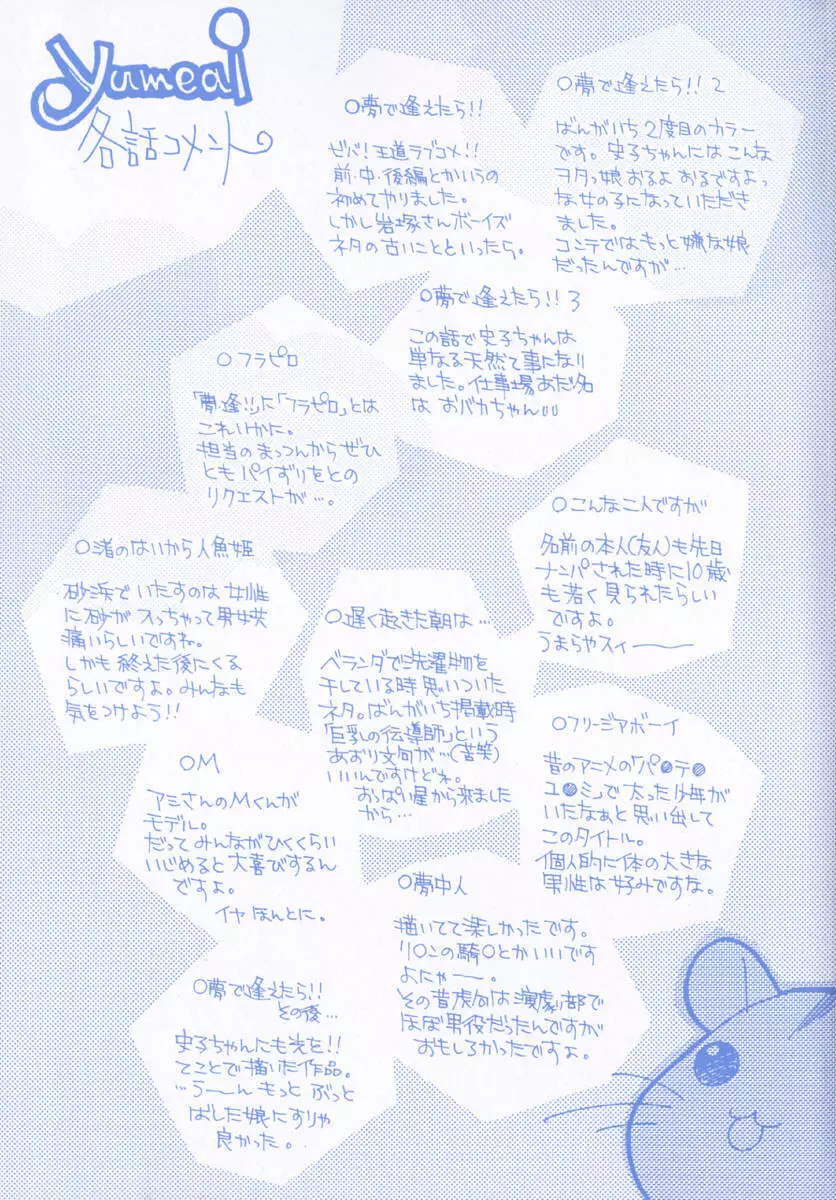 yumeai
各話コメント
○夢で逢えたら!!
ゼバ!王道ラブコメ!!
前・中・後編とかいうの
初めてやりました。
しかし岩塚さんボーイズ
ネタの古いことといったら。
○夢で逢えたら!! 2
ばんがいち2度目のカラー
です。史子ちゃんにはこんな
ヲタっ娘おるよおるですよっ
な女の子になっていただき
ました。
コンテではもっと嫌な娘
だったんですが…
○夢で逢えたら!! 3
この話で史子ちゃんは
単なる天然て事になり
ました。仕事場あだ名
は おバカちゃん
○フラピロ
「夢・逢!!」に「フラピロ」とは
これいかに。
担当のまっつんからぜひ
ともパイずりをとの
リクエストが…。
○こんな二人ですが
名前の本人(友人)も先日
ナンパされた時に10歳
も若く見られたらしい
ですよ。
うまらやスィーー
○渚のはいから人魚姫
砂浜でいたすのは女性
に砂が入っちゃって男女共
痛いらしいですね。
しかも終えた後にくる
らしいですよ。みんなも
気をつけよう!!
○遅く起きた朝は…
ベランダで洗濯物を
干している時思いついた
ネタ。ばんがいち掲載時
「巨乳の伝導師」という
あおり文句が…(苦笑)
いいんですけどね。
おっぱい星から来ました
から…
○フリージアボーイ
昔のアニメの「パ●テ●
ユ●ミ」で太った少年が
いたなぁと思い出して
このタイトル。
個人的に体の大きな
男性は好みですな。
○M
アミさんのMくんが
モデル。
だってみんながひくくらい
いじめると大喜びするん
ですよ。
イヤ ほんとに。
○夢中人
描いてて楽しかったです。
リ○ンの騎○とかいいです
よにゃー。
その昔虎向は演劇部で
ほぼ男役だったんですが
おもしろかったですよ。
○夢で逢えたら!!
その後…
史子ちゃんにも光を!!
てことで描いた作品。
…うーん もっと ぶっと
ばした娘にすりゃ
良かった。